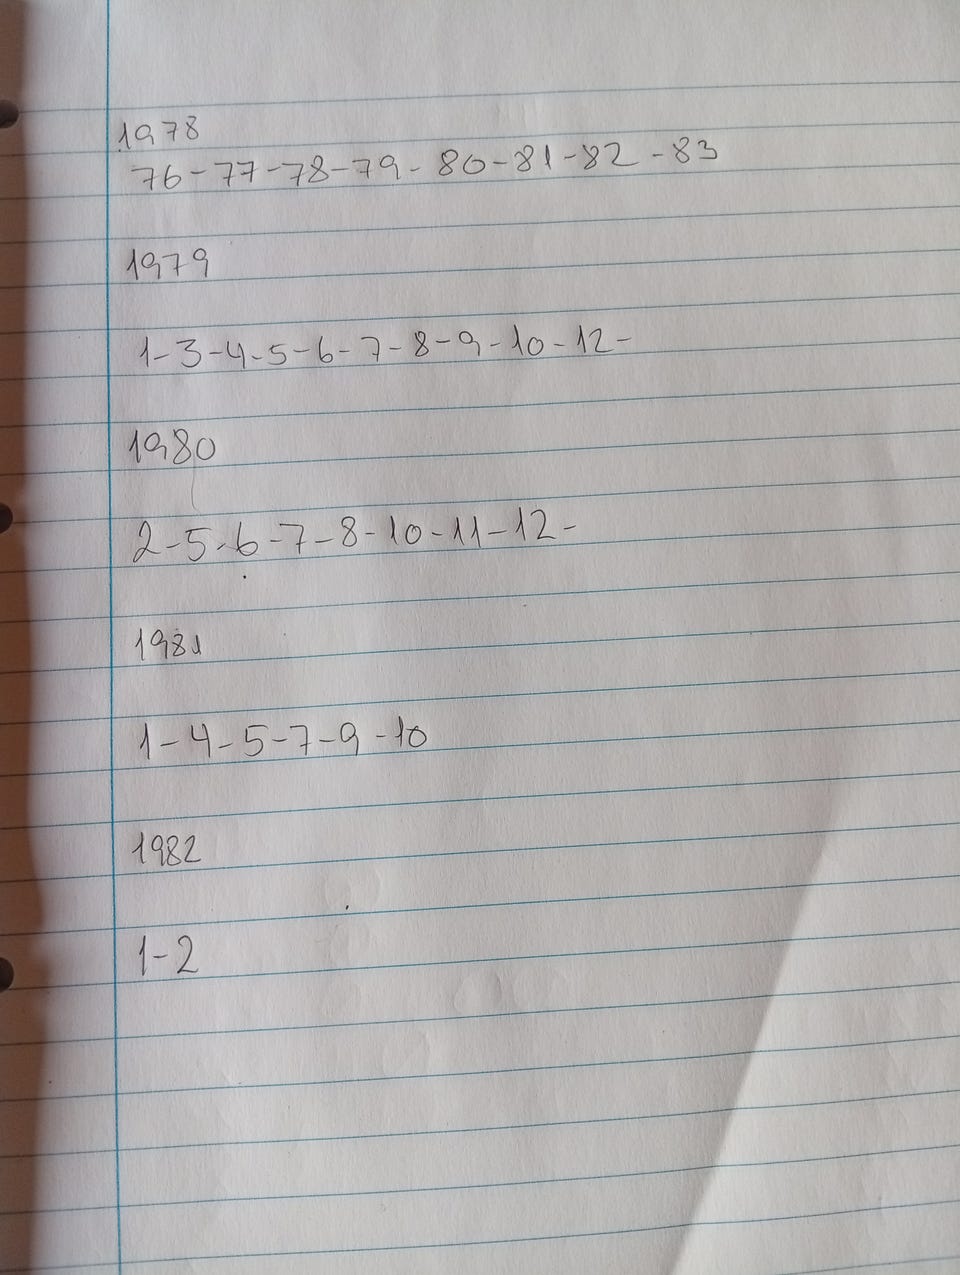 1978
76-77-78-79-80-81-82-83
1979
1-3-4-5-6-7-8-9-10-12-
1980
2-5-6-7-8-10-11-12-
1981
1-4-5-7-9-10
1982
1-2